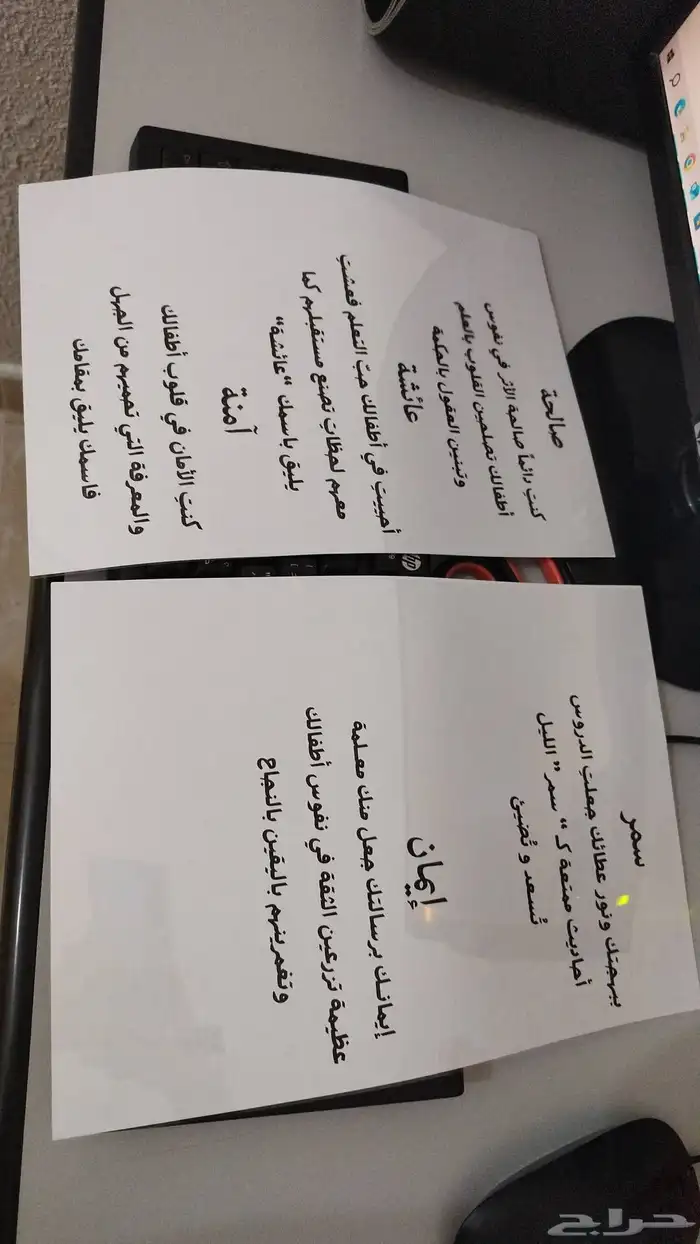 صالحة
كنتِ دائماً صالحة الأثر في نفوس
أطفالك تصلحين القلوب بالعلم
وتبنين العقول بالحكمة
عائشة
أحييتِ في أطفالك حبّ التعلم فعشتِ
معهم لحظاتٍ تصنع مستقبلهم كما
يليق باسمك "عائشة"
آمنة
كنتِ الأمان في قلوب أطفالك
والمعرفة التي تحميهم من الجهل
فاسمك يليق بمقامك
سمر
ببهجتك ونور عطائك جعلتِ الدروس
أحاديث ممتعة كـ "سمر" الليل
تُسعد و تُضيئ
إيمان
إيمانـك برسالتك جعل منك معـلمة
عظيمة تزرعين الثقة في نفوس أطفالك
وتغمرينهم باليقين بالنجاح
hp
حراج